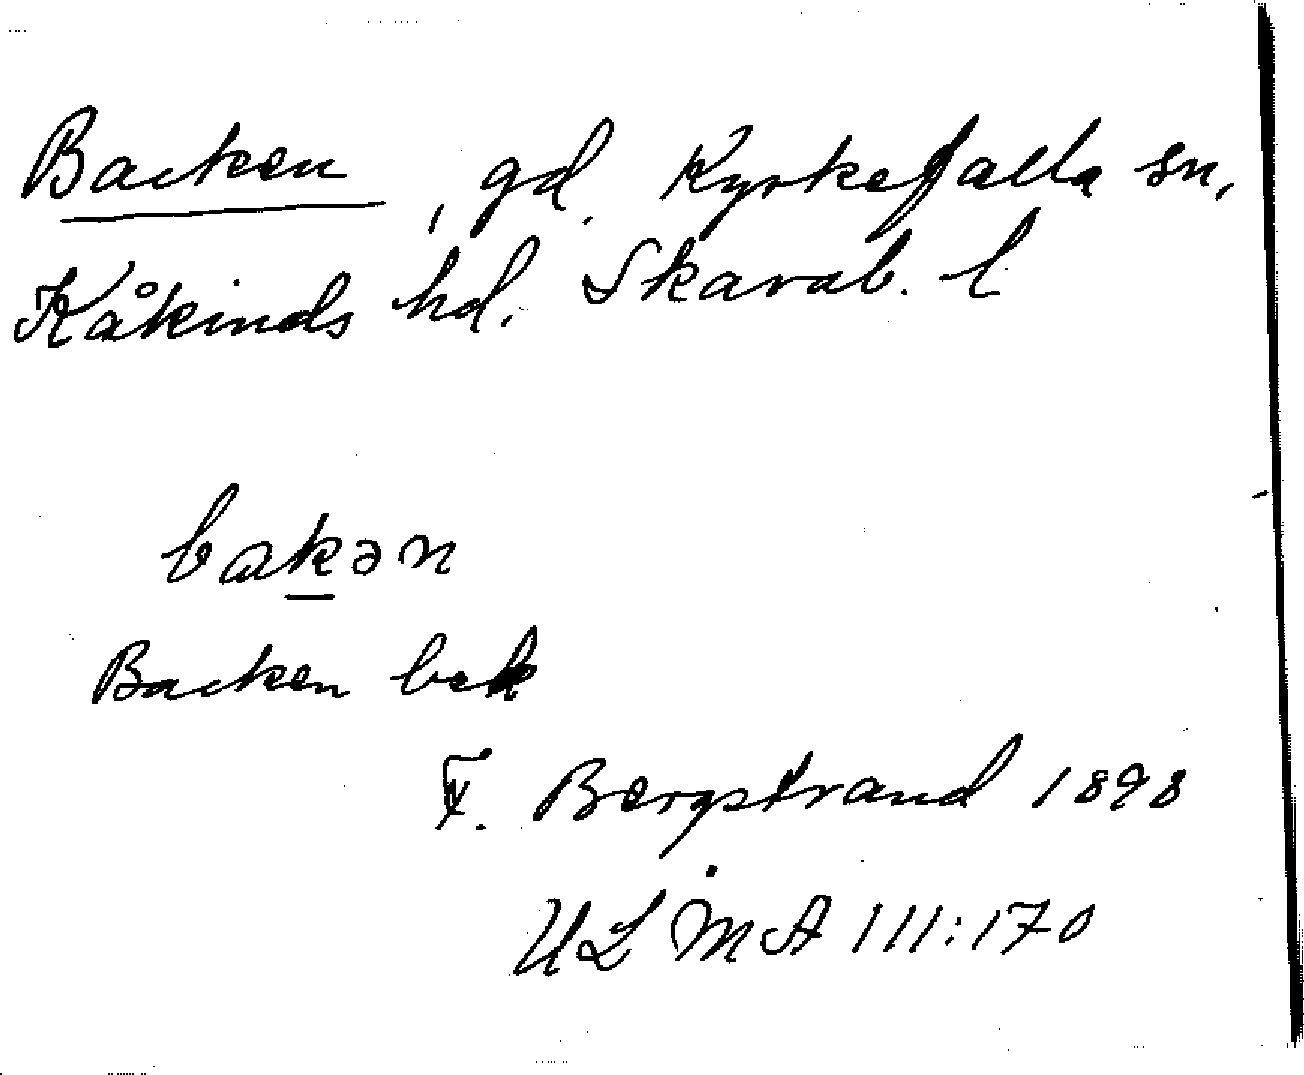 Backen, gd. Kyrkefalla sn,
Kåkinds hd. Skarab. l
bakən
Backen bek
F. Bergstrand 1898
ULMA 111:170